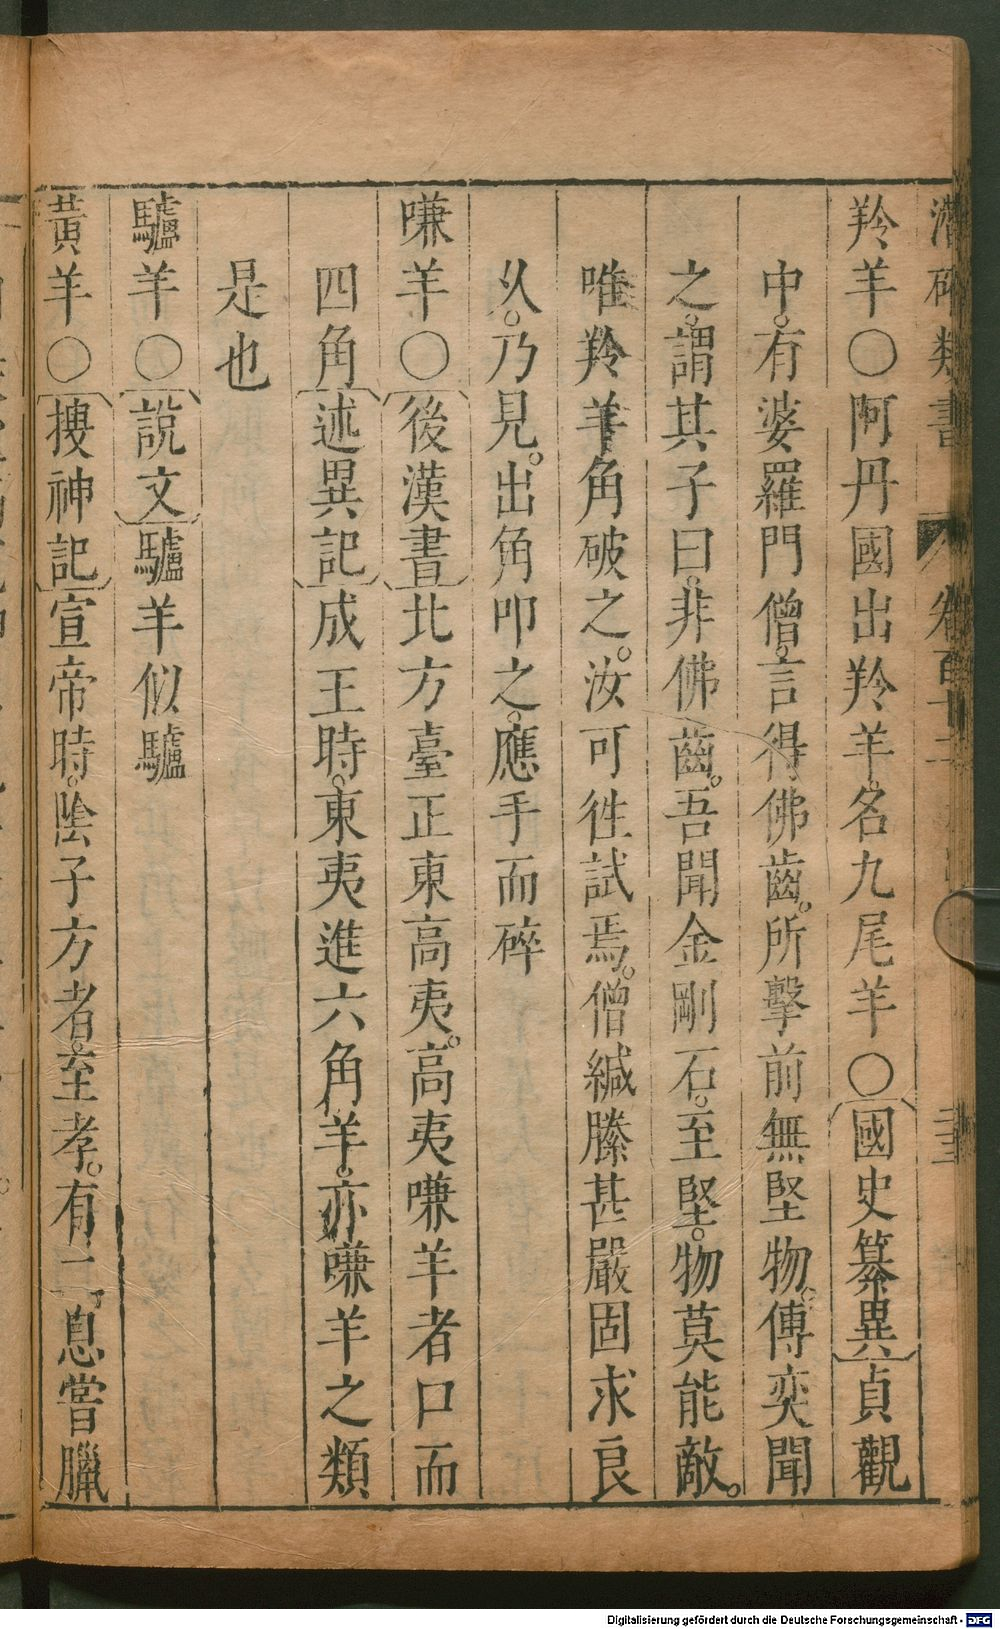 潛確類書 卷百十
羚羊〇阿丹國出羚羊名九尾羊〇國史纂異貞觀
中有婆羅門僧言得佛齒所擊前無堅物傅奕聞
之謂其子曰非佛齒吾聞金剛石至堅物莫能敵
唯羚羊角破之汝可徃試焉僧緘縢甚嚴固求良
乆乃見出角叩之應手而碎
嗛羊〇後漢書北方臺正東高夷高夷嗛羊者口而
四角述異記成王時東夷進六角羊亦嗛羊之類
是也
驢羊〇說文驢羊似驢
黃羊〇搜神記宣帝時陰子方者至孝有二息嘗臘
Digitalisierung gefördert durch die Deutsche Forschungsgemeinschaft - DFG